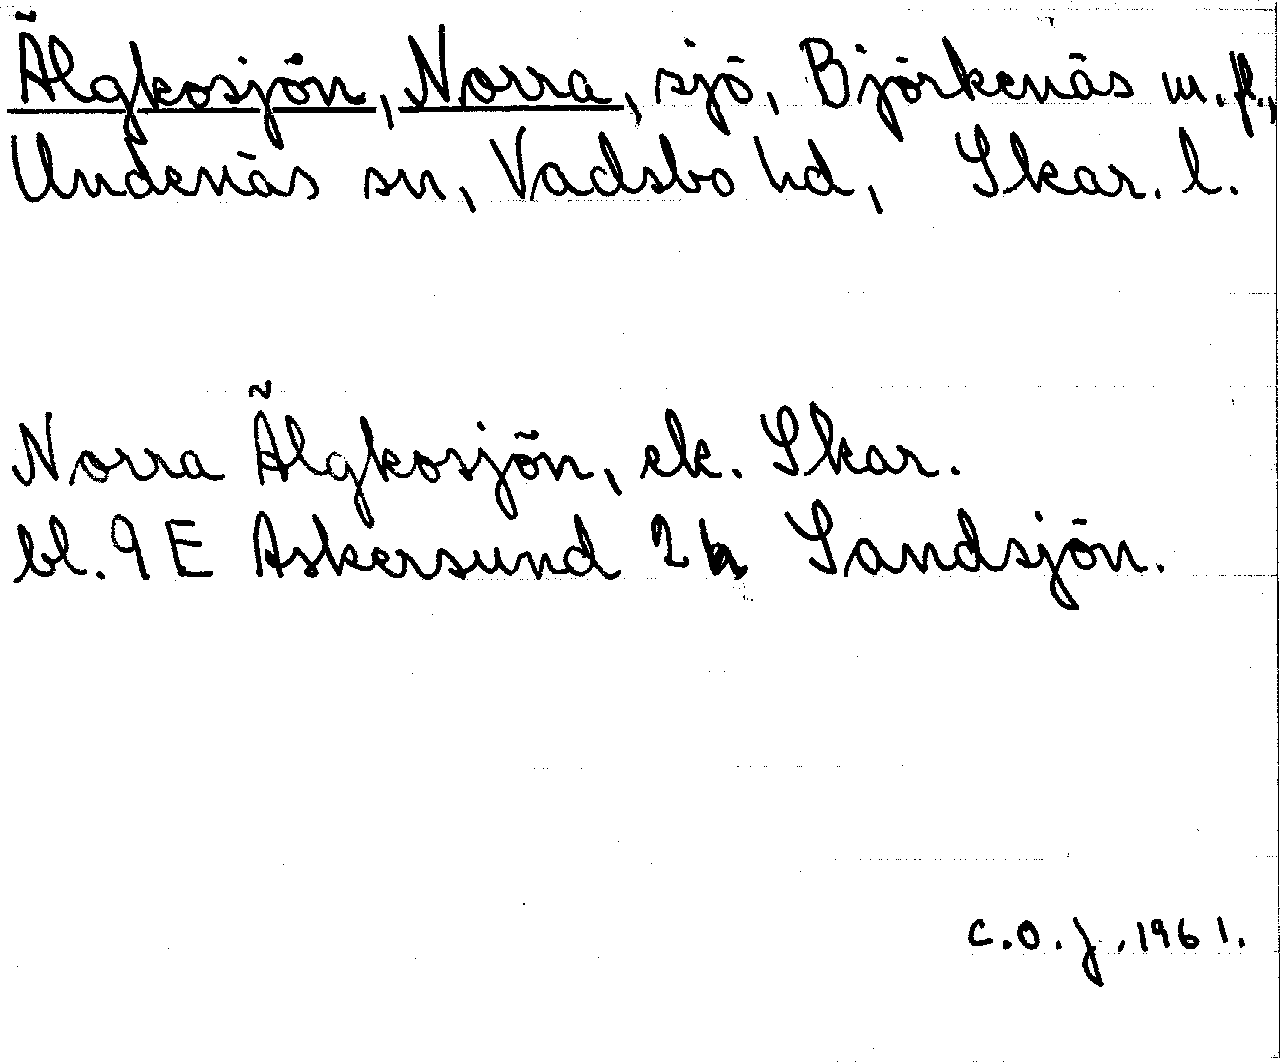 Älgkosjön, Norra, sjö, Björkenäs m.fl.,
Undenäs sn, Vadsbo hd, Skar. l.
Norra Älgkosjön, ek. Skar.
bl. 9E Askersund 2h Sandsjön.
C.O.J. 1961.